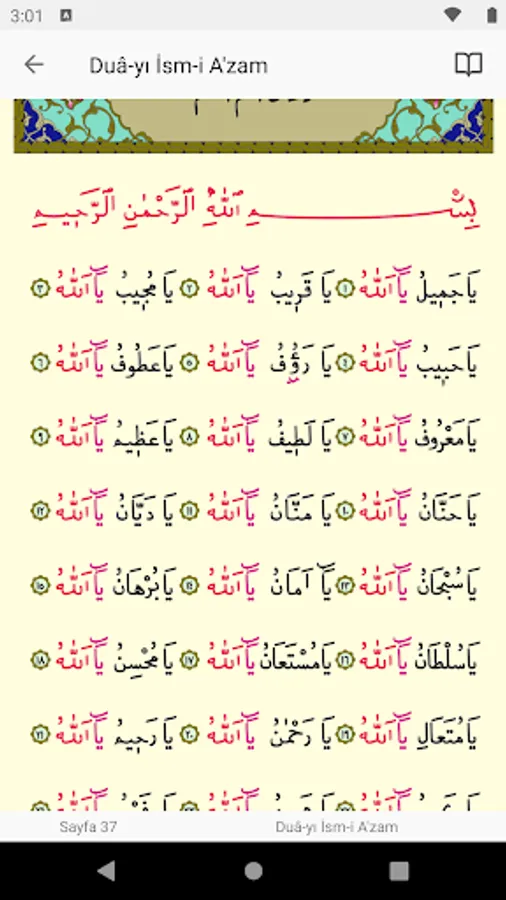 3:01
Duâ-yı İsm-i A'zam
بِسْمِ اللّٰهِ الرَّحْمٰنِ الرَّحِيمِ
يَا جَمِيلُ يَٓا اَللّٰهُ ١ يَا قَرِيبُ يَٓا اَللّٰهُ ٢ يَا مُجِيبُ يَٓا اَللّٰهُ ٣
يَا حَبِيبُ يَٓا اَللّٰهُ ٤ يَا رَؤُفُ يَٓا اَللّٰهُ ٥ يَا عَطُوفُ يَٓا اَللّٰهُ ٦
يَا مَعْرُوفُ يَٓا اَللّٰهُ ٧ يَا لَطِيفُ يَٓا اَللّٰهُ ٨ يَا عَظِيمُ يَٓا اَللّٰهُ ٩
يَا حَنَّانُ يَٓا اَللّٰهُ ١٠ يَا مَنَّانُ يَٓا اَللّٰهُ ١١ يَا دَيَّانُ يَٓا اَللّٰهُ ١٢
يَا سُبْحَانُ يَٓا اَللّٰهُ ١٣ يَٓا اَمَانُ يَٓا اَللّٰهُ ١٤ يَا بُرْهَانُ يَٓا اَللّٰهُ ١٥
يَا سُلْطَانُ يَٓا اَللّٰهُ ١٦ يَا مُسْتَعَانُ يَٓا اَللّٰهُ ١٧ يَا مُحْسِنُ يَٓا اَللّٰهُ ١٨
يَا مُتَعَالِ يَٓا اَللّٰهُ ١٩ يَا رَحْمٰنُ يَٓا اَللّٰهُ ٢٠ يَا رَحِيمُ يَٓا اَللّٰهُ ٢١
Sayfa 37 Duâ-yı İsm-i A'zam